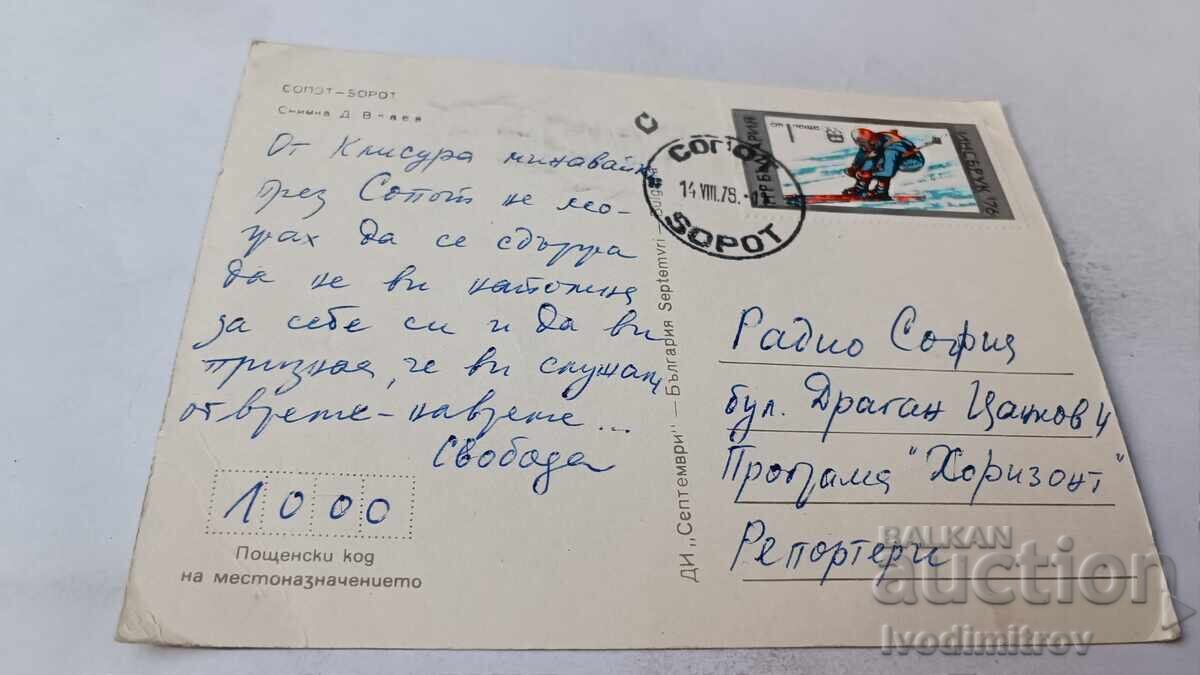 СОПОТ-SOPOT
Снимка Д. Влаев
От Клисура минавайки
през Сопот не мо-
жах да се сдържа
да не ви напомня
за себе си и да ви
призная, че ви слушам
от време-навреме...
Свобода
1000
Пощенски код
на местоназначението
ДИ „Септември" — България Septemvri —
С
СОПОТ
14 VIII.75.-
SOPOT
НР БЪЛГАРИЯ
ИНСБРУК '76
Радио София
бул. Драган Цанков 4
Програма "Хоризонт"
Репортери
BALKAN
auction
Ivodimitrov